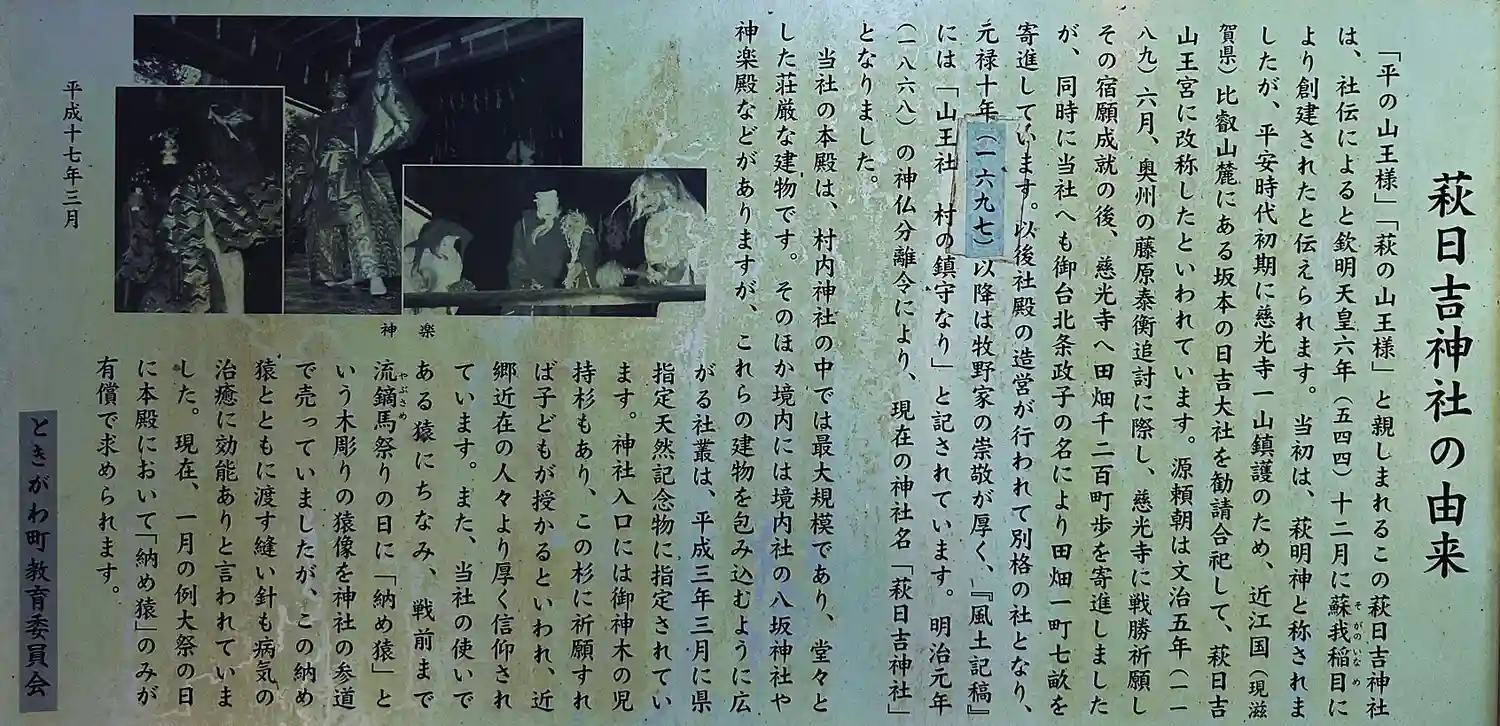 萩日吉神社の由来
「平の山王様」「萩の山王様」と親しまれるこの萩日吉神社
は、社伝によると欽明天皇六年（五四四）十二月に蘇我稲目に
そがのいなめ
より創建されたと伝えられます。当初は、萩明神と称されま
したが、平安時代初期に慈光寺一山鎮護のため、近江国（現滋
賀県）比叡山麓にある坂本の日吉大社を勧請合祀して、萩日吉
山王宮に改称したといわれています。源頼朝は文治五年（一一
八九）六月、奥州の藤原泰衡追討に際し、慈光寺に戦勝祈願し
その宿願成就の後、慈光寺へ田畑千二百町歩を寄進しました
が、同時に当社へも御台北条政子の名により田畑一町七畝を
寄進しています。以後社殿の造営が行われて別格の社となり、
元禄十年（一六九七）以降は牧野家の崇敬が厚く、『風土記稿』
には「山王社 村の鎮守なり」と記されています。明治元年
（一八六八）の神仏分離令により、現在の神社名「萩日吉神社」
となりました。
当社の本殿は、村内神社の中では最大規模であり、堂々と
した荘厳な建物です。そのほか境内には境内社の八坂神社や
神楽殿などがありますが、これらの建物を包み込むように広
がる社叢は、平成三年三月に県
指定天然記念物に指定されてい
ます。神社入口には御神木の児
持杉もあり、この杉に祈願すれ
ば子どもが授かるといわれ、近
郷近在の人々より厚く信仰され
ています。また、当社の使いで
ある猿にちなみ、戦前まで
流鏑馬祭りの日に「納め猿」と
やぶさめ
いう木彫りの猿像を神社の参道
で売っていましたが、この納め
猿とともに渡す縫い針も病気の
治癒に効能ありと言われていま
した。現在、一月の例大祭の日
に本殿において「納め猿」のみが
有償で求められます。
神楽
平成十七年三月
ときがわ町教育委員会